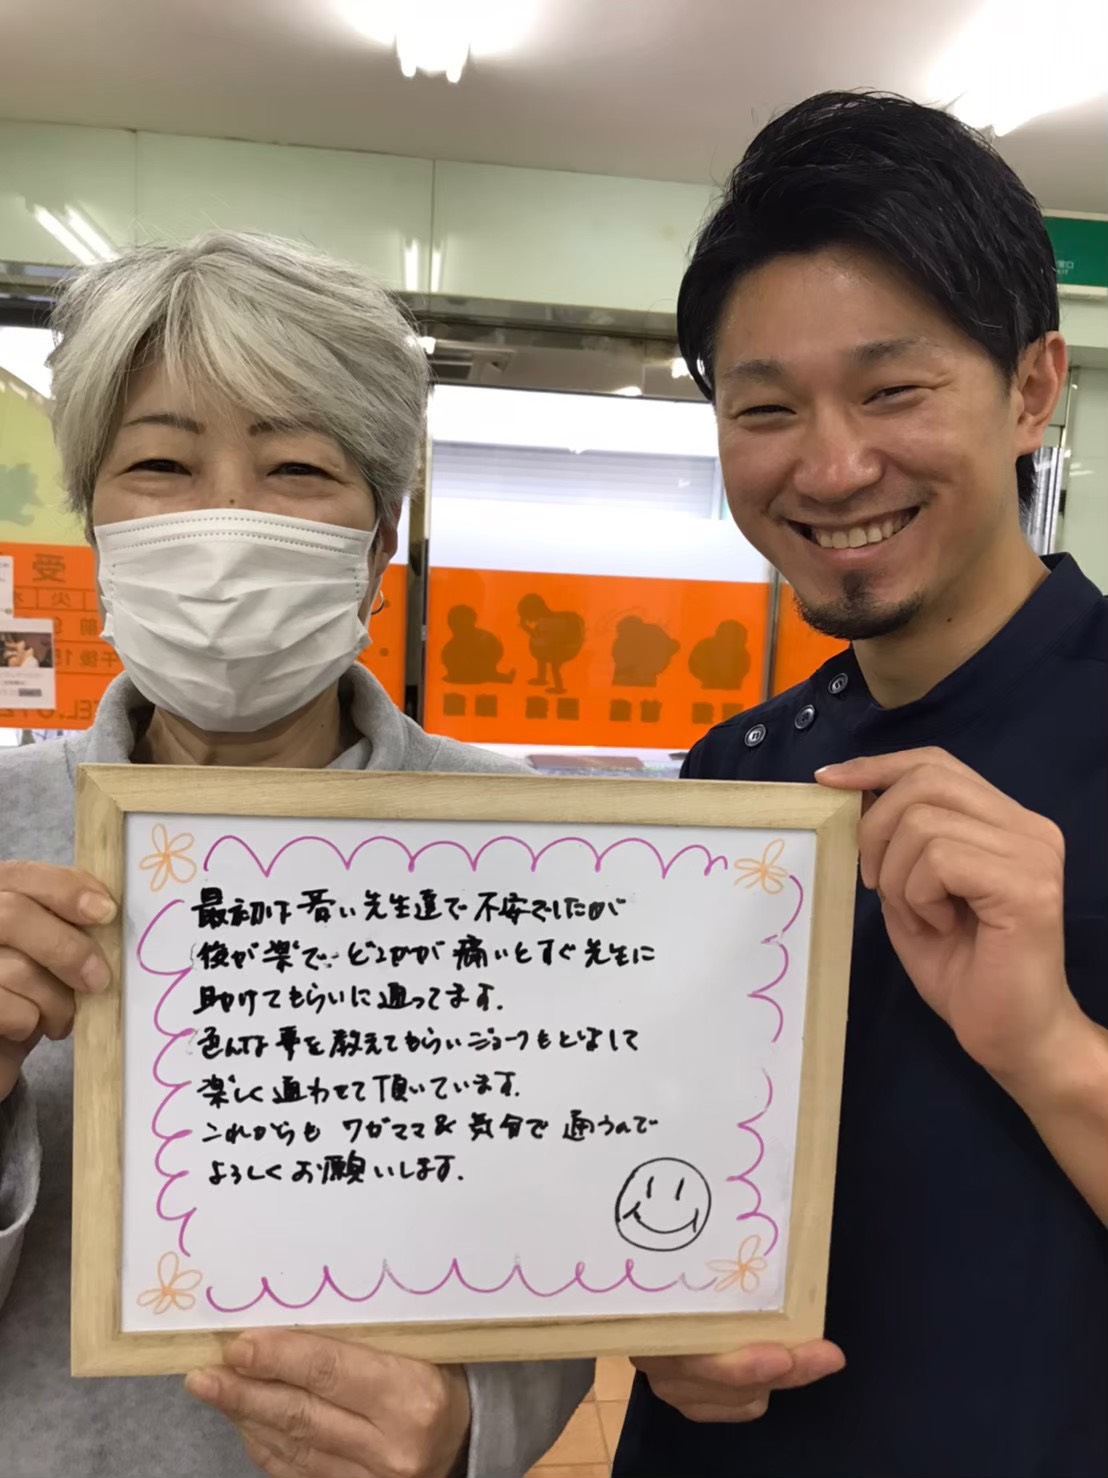 最初は若い先生達で不安でしたが
後が楽で、どこかが痛いとすぐ先生に
助けてもらいに通ってます。
色んな事を教えてもらいジョークもとばして
楽しく通わせて頂いています。
これからも ワガママ& 気分で 通うんで
よろしくお願いします。
受
火
前
午後
TEL